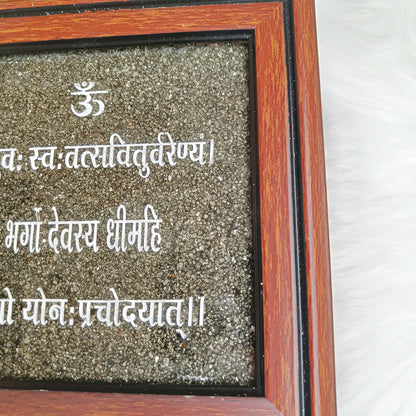 ॐ
स्व: तत्सवितुर्वरेण्यं।
भर्गो देवस्य धीमहि
योन: प्रचोदयात्।।